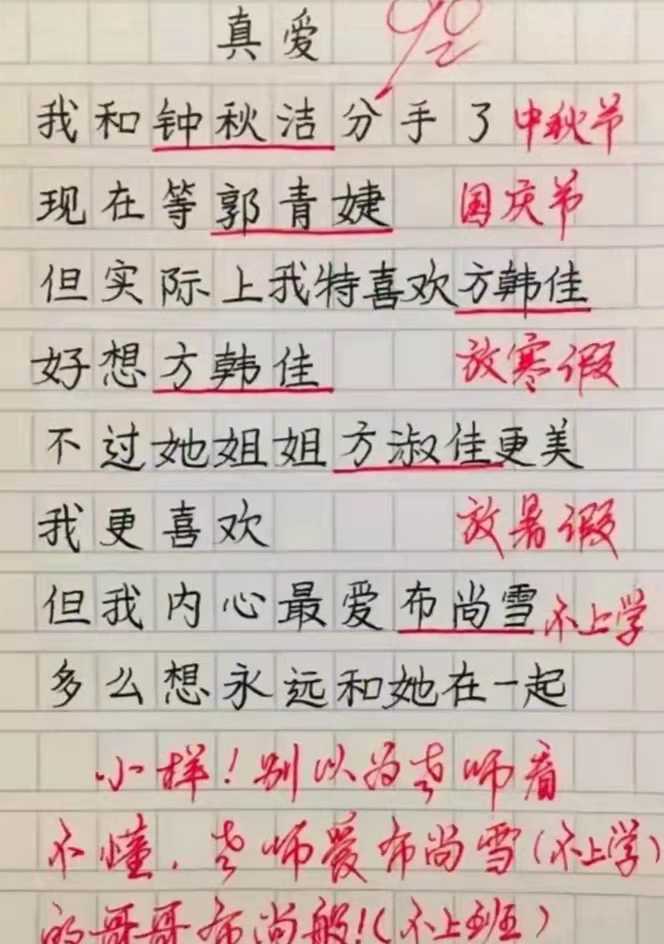 真爱 92
我和钟秋洁分手了 中秋节
现在等郭青婕 国庆节
但实际上我特喜欢方韩佳
好想方韩佳 放寒假
不过她姐姐方淑佳更美
我更喜欢 放暑假
但我内心最爱布尚雪 不上学
多么想永远和她在一起
小样！别以为老师看
不懂，老师爱布尚雪(不上学)
的哥哥布尚般！(不上班)